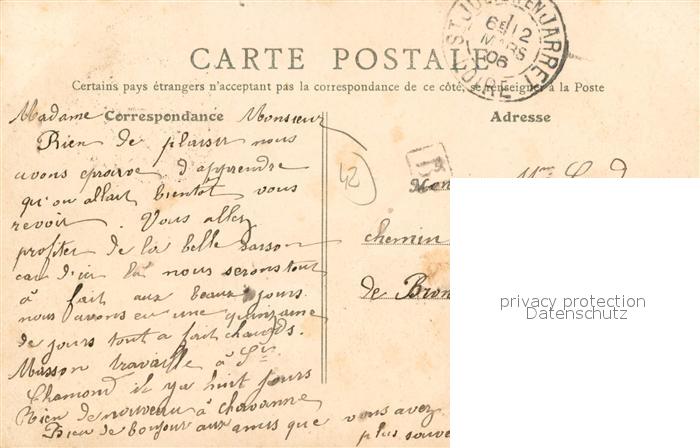 CARTE POSTALE
Certains pays étrangers n'acceptent pas la correspondance de ce côté, se renseigner à la Poste
Correspondance
Adresse
ST JULIEN EN JARRET
6E 12
MARS
06
LOIRE
Madame Monsieur
Rien de plaisir nous
avons eprouve d'apprendre
qu'on allait bientot vous
revoir. Vous allez
profiter de la belle saison
car d'ici là nous serons tout
à fait aux beaux jours
nous avons eu une quinzaine
de jours tout a fait chauds.
Masson travaille à St
Chamond il ya huit jours
Rien de nouveau à chavanne
Bien de bonjour aux amis que vous avez
plus
42
chemin
de Bron
privacy protection
Datenschutz